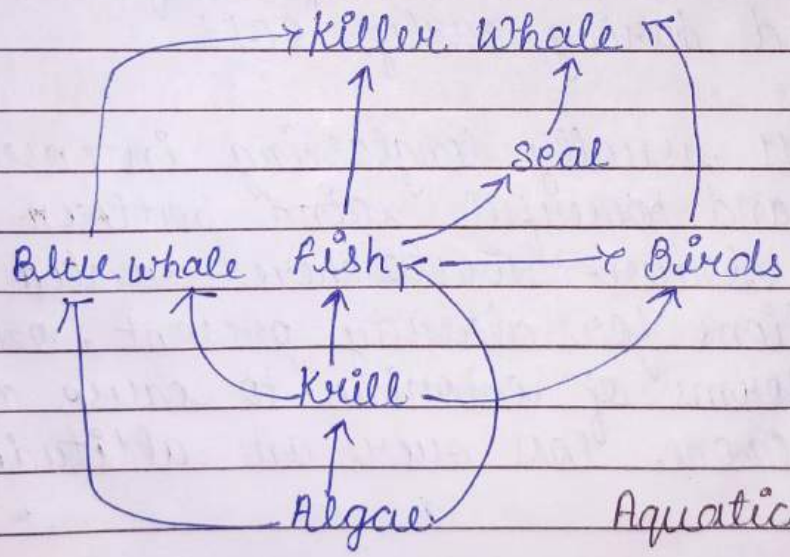 Killer Whale
seal
Blue whale fish Birds
Krill
Algae
Aquatic